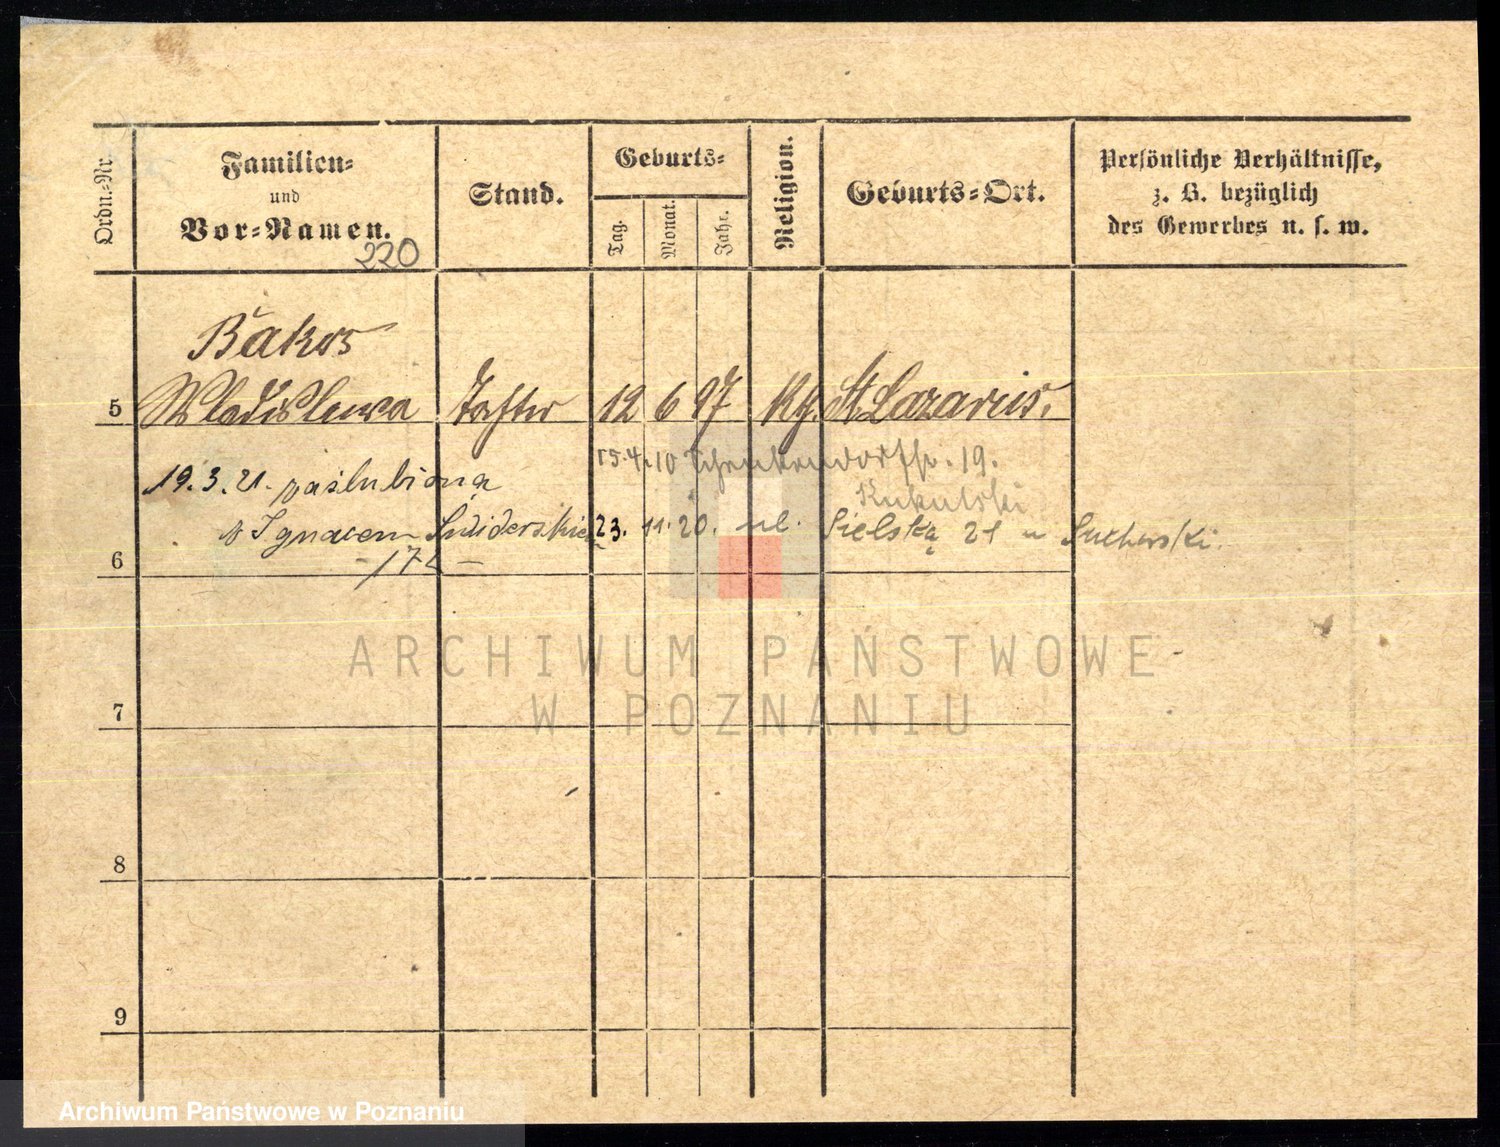 Ordn.-Nr.
Familien-
und
Vor-Namen.
220
Stand.
Geburts-
Tag.
Monat.
Jahr.
Religion.
Geburts-Ort.
Persönliche Verhältnisse,
z. B. bezüglich
des Gewerbes u. s. w.
Bakos
5 Wladislawa Tochter 12 6 97 St Lazarus.
15.4.10 Schenkendorffstr. 19.
19.3.21. poślubioną
Kukulski
z Ignacem Świderskie 23. 11. 20. ul. Sielska 21 u Sucharski.
6
7
8
9
ARCHIWUM PAŃSTWOWE
W POZNANIU
Archiwum Państwowe w Poznaniu